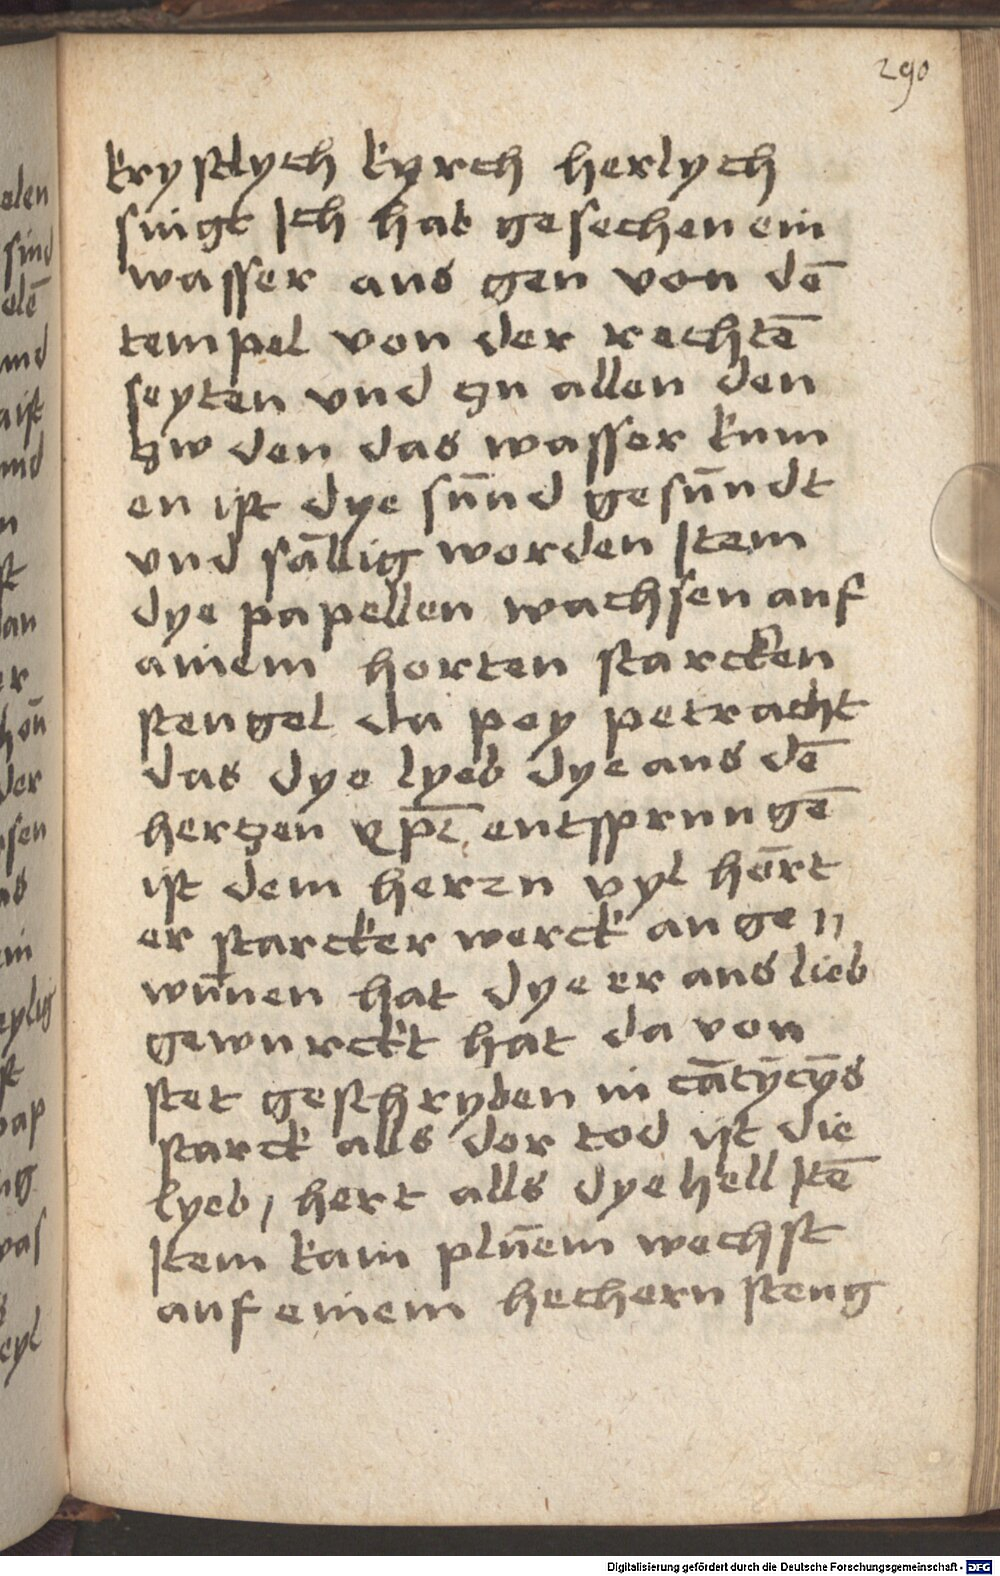 290
krystlych kyrch herlych
singt Ich hab gesechen ein
wasser aus gen von dē
tempel von der rechtē
seyten vnd zu allen den
zw den das wasser kum
en ist dye sūnd gesūndt
vnd sāllig worden Item
dye papellen wachsen auf
ainem horten starcken
stengel da pey petracht
das dye lyeb dye aus dē
hertzen xp̄i entssprungē
ist dem herzn vyl hōrt
er starcker werck an ge //
wūnen hat dye er aus lieb
gewurckt hat da von
stet geschryben in cātȳcȳs
starck alls der tod ist die
lyeb / hert alls dye hell Itē
Item kain plūem wechst
auf einem hechern steng
Digitalisierung gefördert durch die Deutsche Forschungsgemeinschaft - DFG